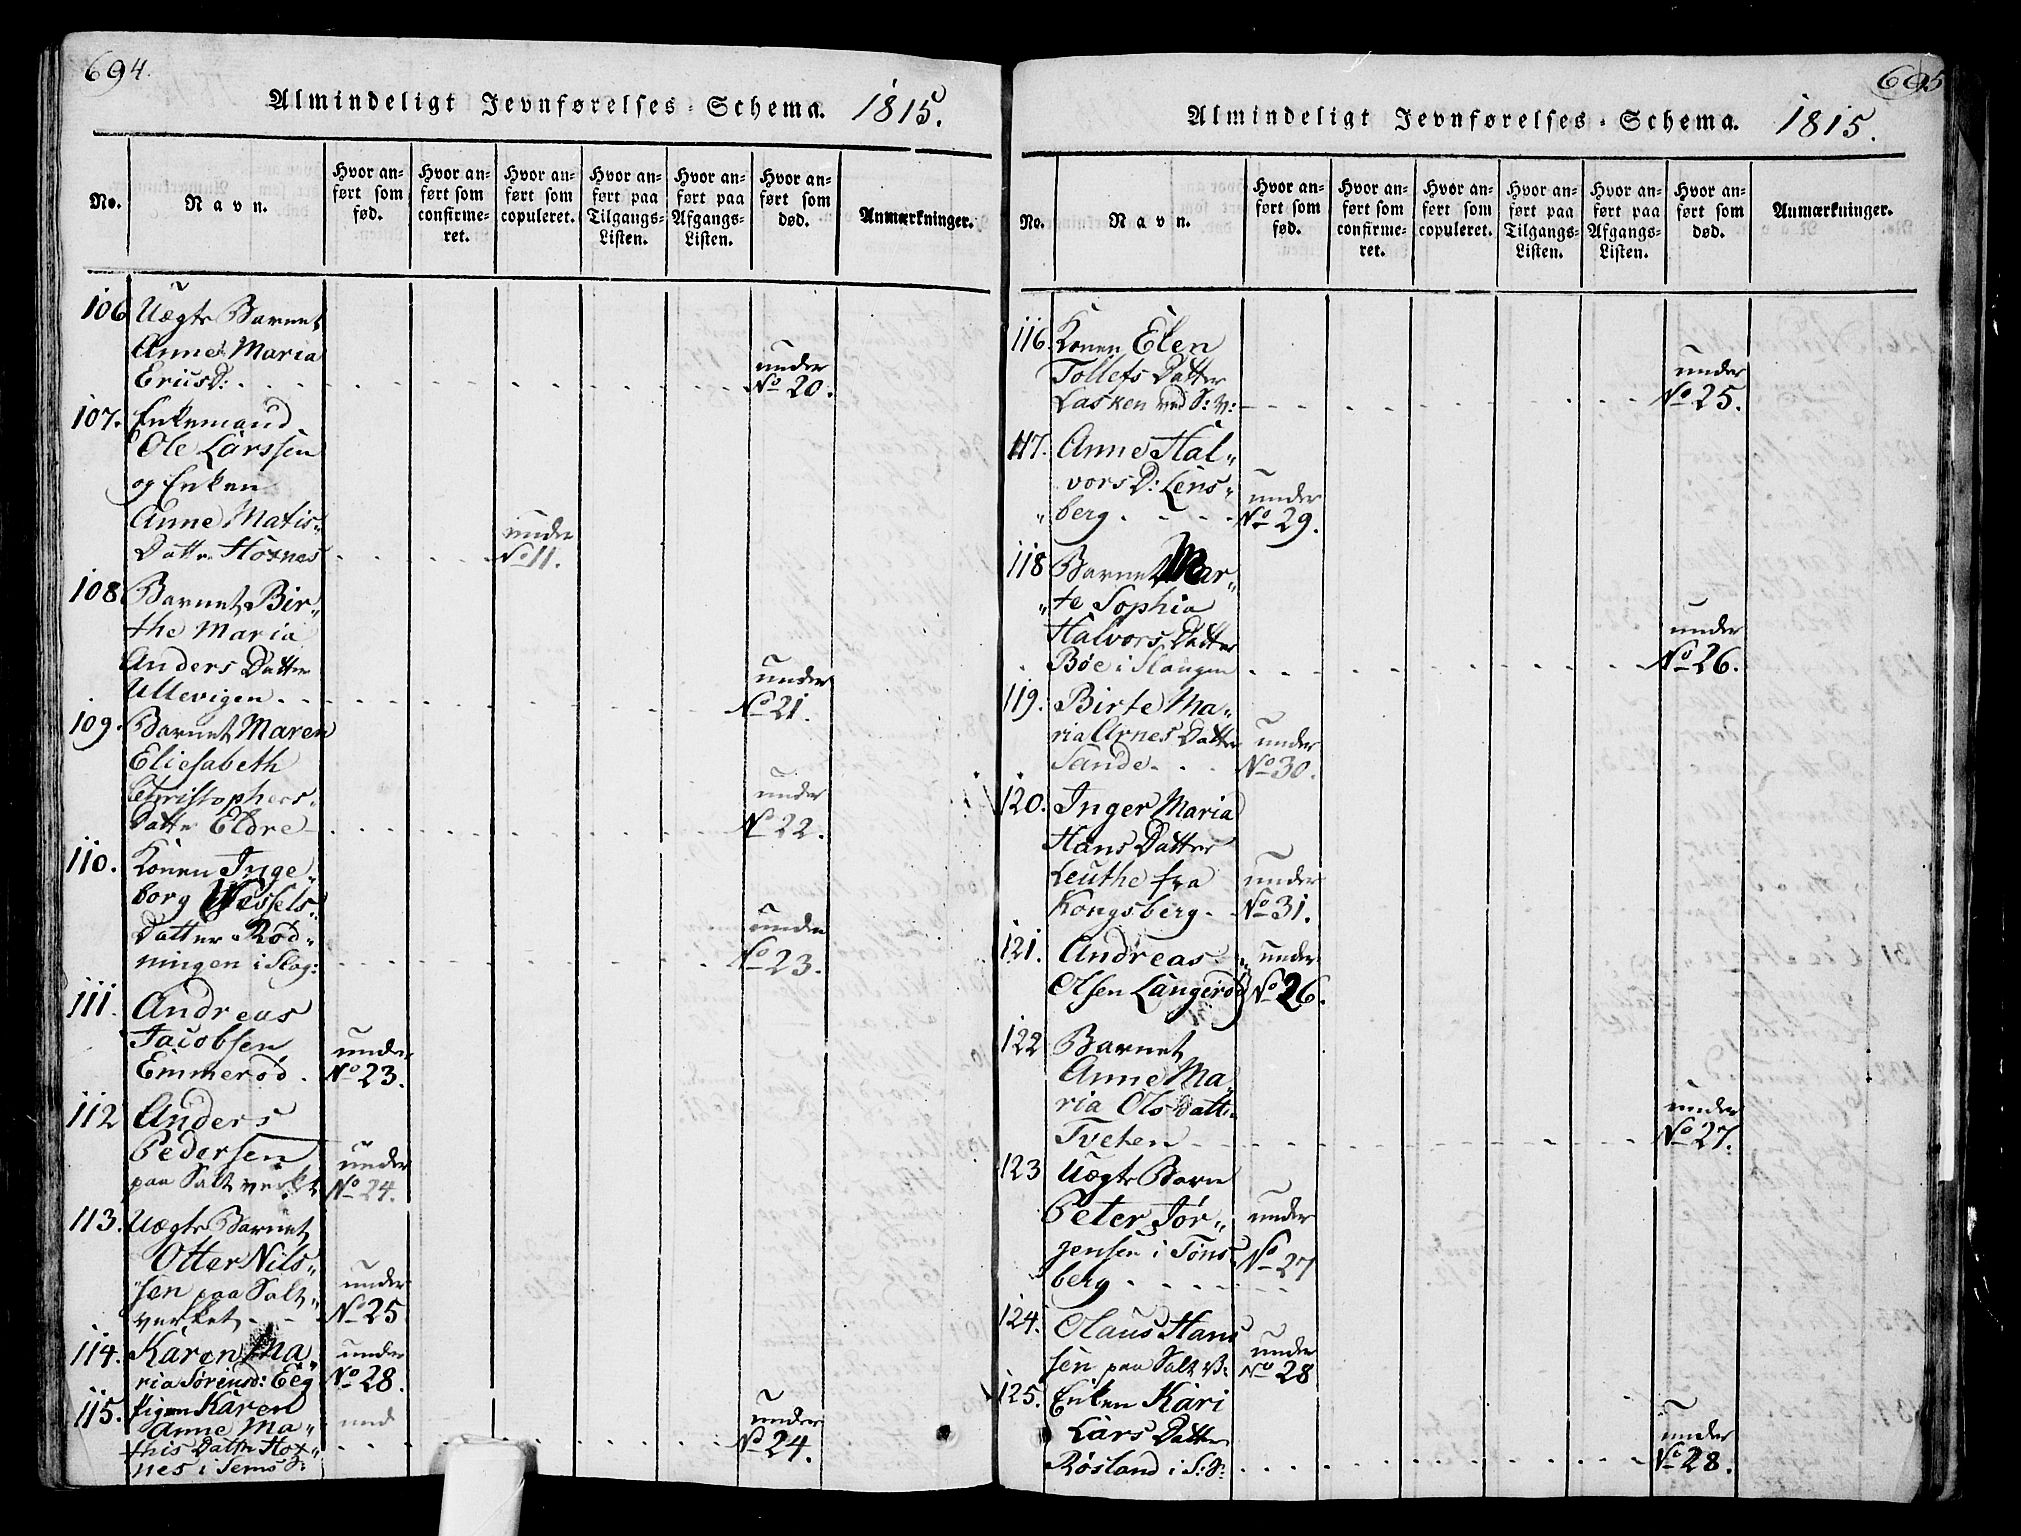 694.
Almindeligt Jevnførelses-Schema. 1815.
No.
Navn.
Hvor anført som fød.
Hvor anført som confirmeret.
Hvor anført som copuleret.
Hvor anført paa Tilgangs-Listen.
Hvor anført paa Afgangs-Listen.
Hvor anført som død.
Anmærkninger.
106 Uægte Barnet
Anne Maria
EricsD: under No 20.
107. Enkemand
Ole Larssen
og Enken
Anne Matis-
Datter Hoxnes under No 11.
108 Barnet Bir-
the Maria
Anders Datter
Ullevigen under No 21.
109. Barnet Maren
Eliesabeth
Christophers-
Datter Eldre under No 22.
110. Konen Inge-
borg Wessels-
Datter Rød-
ningen i Slag: under No 23.
111. Andreas
Jacobsen
Emmerød. under No 23.
112 Anders
Pedersen
paa Saltverket under No 24.
113. Uægte Barnet
Otter Nils-
sen paa Salt-
verket under No 25
114. Karen Ma-
ria Sørensd: Eeg under No 28.
115. Pigen Karen und
Anne Ma-
this Datter Hox-
nes i Sems S: under No 24.
695
Almindeligt Jevnførelses-Schema. 1815.
No.
Navn.
Hvor anført som fød.
Hvor anført som confirmeret.
Hvor anført som copuleret.
Hvor anført paa Tilgangs-Listen.
Hvor anført paa Afgangs-Listen.
Hvor anført som død.
Anmærkninger.
116. Konen Elen
Tollefs Datter
Lasken ved S: V: under No 25.
117. Anne Hal-
vors D: Lens-
berg under No 29.
118 Barnet Mar-
te Sophia
Halvors Datter
Bøe i Slaugen under No 26.
119. Birte Ma-
ria Arnes Datter
Sande under No 30.
120. Inger Maria
Hans Datter
Leuthe fra
Kongsberg under No 31.
121. Andreas
Olsen Langerød under No 26.
122 Barnet
Anne Ma-
ria Ols Datter
Tveten under No 27.
123 Uægte Barn
Peter Jør-
gensen i Tøns-
berg under No 27
124. Olaus Han-
sen paa Salt V: under No 28
125. Enken Kari
Lars Datter
Røsland i S: S: under No 28.